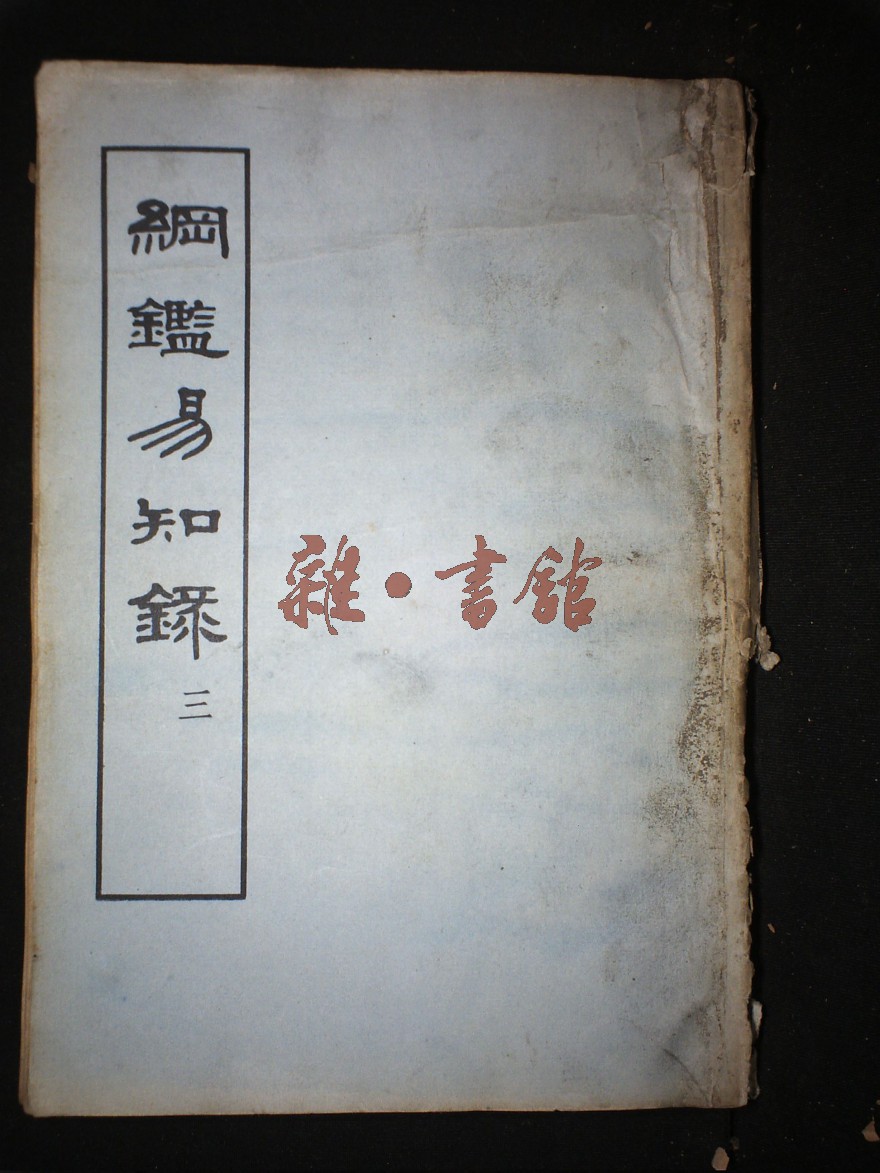 綱鑑易知錄 三
雜·書館